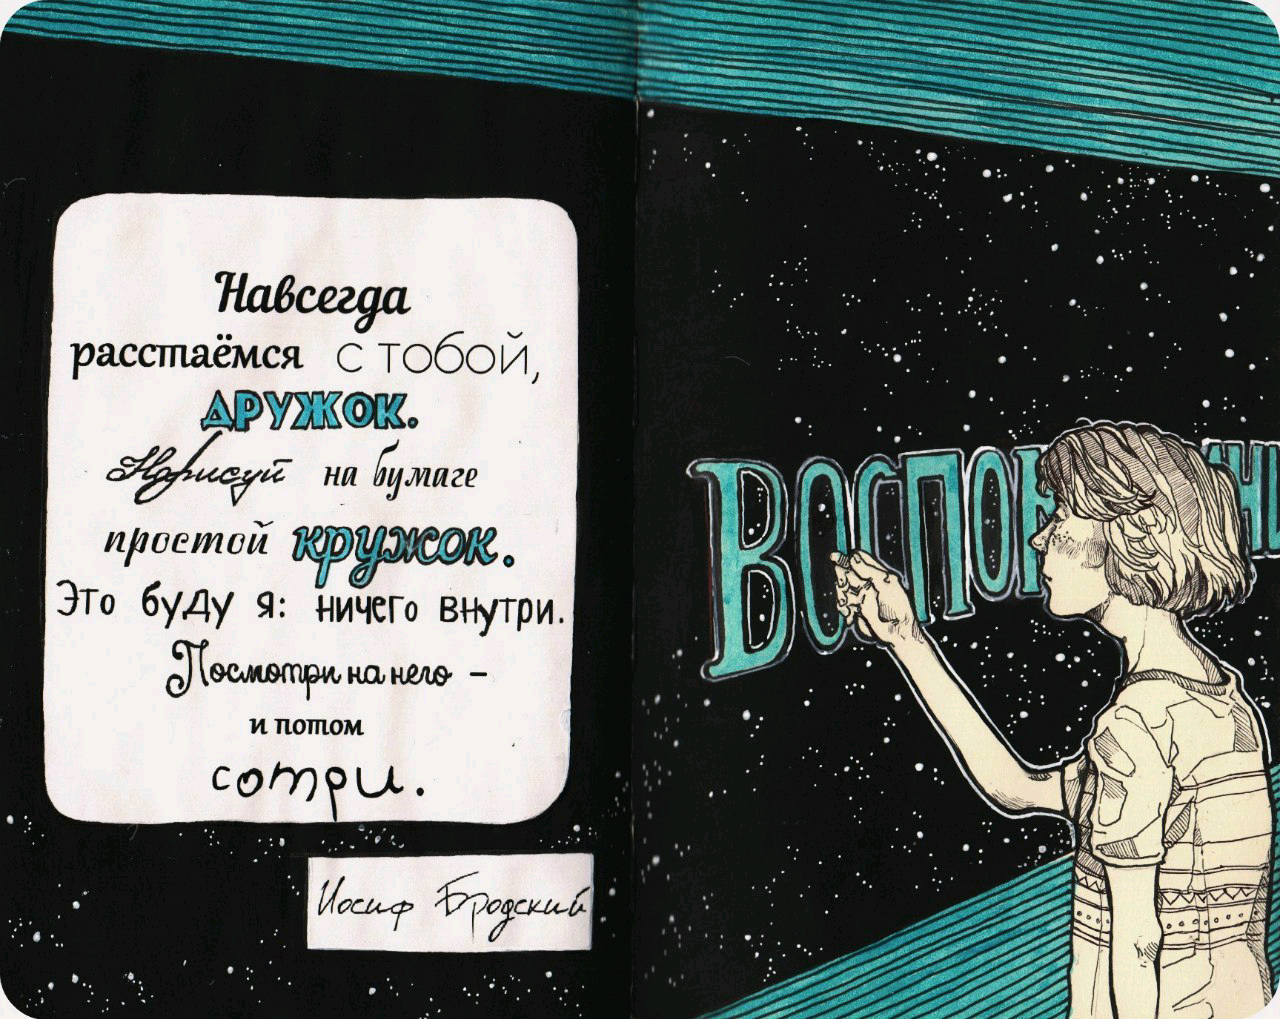 Навсегда
расстаёмся с тобой,
дружок.
Нарисуй на бумаге
простой кружок.
Это буду я: ничего внутри.
Посмотри на него –
и потом
сотри.
Иосиф Бродский